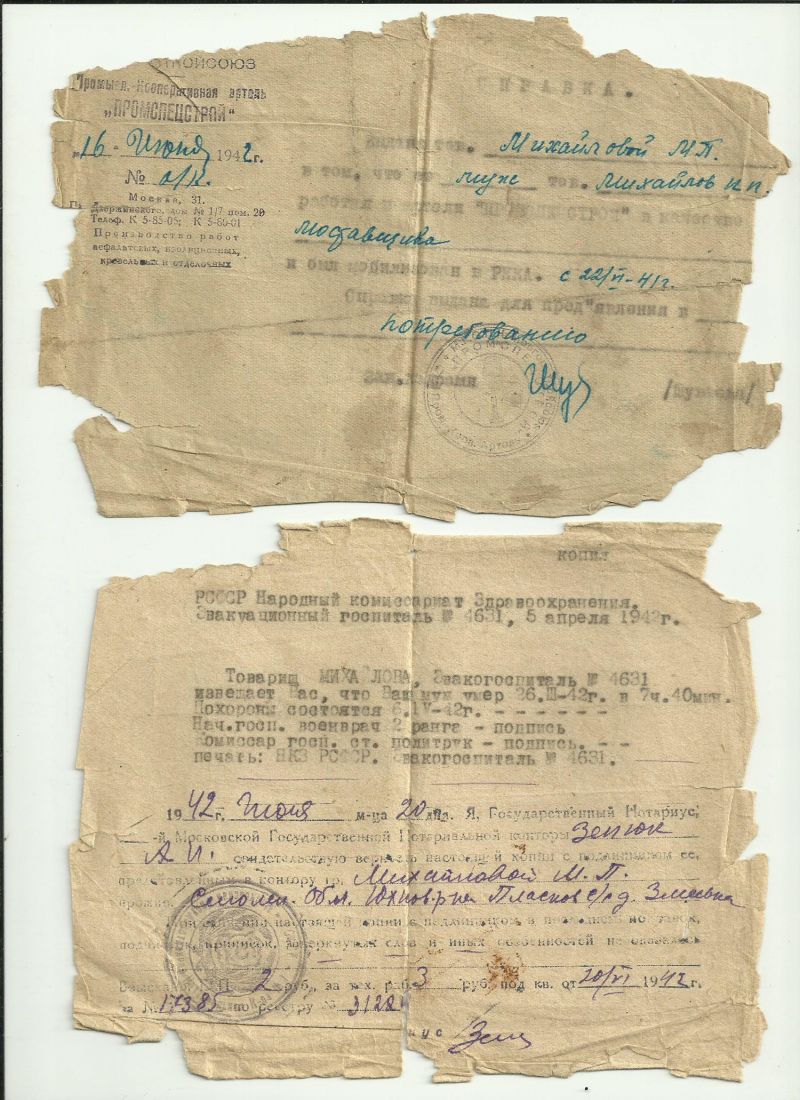 СТРОЙСОЮЗ
Промысл.-Кооперативная артель
„ПРОМСПЕЦСТРОЙ"
„16 - Июня 1942 г.
№ о/к.
Москва, 31.
Дзержинского, дом № 1/7 пом. 20
Телеф. К 5-85-05; К 5-80-01
Производство работ
асфальтовых, изоляционных,
кровельных и отделочных
СПРАВКА.
Выдана тов. Михайловой М.П.
в том, что ее муж тов. Михайлов И.П.
работал в артели "ПРОМСПЕЦСТРОЙ" в качестве
мостовщика
и был мобилизован в РККА. с 22/VI-41г.
Справка выдана для пред"явления в
потребованию
Зав.кадрами
КОПИЯ
РСФСР Народный комиссариат Здравоохранения.
Эвакуационный госпиталь № 4631, 5 апреля 1942г.
Товарищ МИХА ЛОВА, Эвакогоспиталь № 4631
извещает Вас, что Ваш муж умер 26.III-42г. в 7ч.40мин.
Похороны состоятся 6.IV-42г. - - - - - -
Нач.госп. военврач 2 ранга - подпись
Комиссар госп. ст. политрук - подпись. - -
печать: НКЗ РСФСР. Эвакогоспиталь № 4631.
1942 г. Июня м-ца 20 дня. Я, Государственный Нотариус,
-й Московской Государственной Нотариальной конторы Зепюк
А И. свидетельствую верность настоящей копии с подлинником ее,
представленным в контору гр. Михайловой М.П.
Смолен. Обл. Юхнов р-на Пласков с/с д. Змеевка
При сличении настоящей копии с подлинником в последнем поставок,
подчисток, приписок, зачеркнутых слов и иных особенностей не оказалось
Взыскано 2 руб., за тех. раб. 3 руб. под кв. от 20/VI 1942 г.
за № 17385 по реестру № 3128